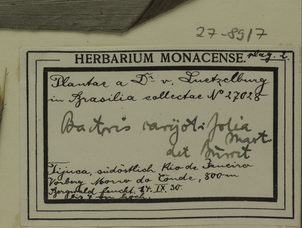 27-8917
HERBARIUM MONACENSE.
Plantae a Dr. v. Luetzelburg
in Brasilia collectae No 27028
Bactris caryotifolia
Mart.
det Burret
Tijuca, südöstlich Rio de Janeiro
Vorberg Morro do Conde, 800m
Bergwald feucht 14. IX. 30.
bis 4 m hoch.